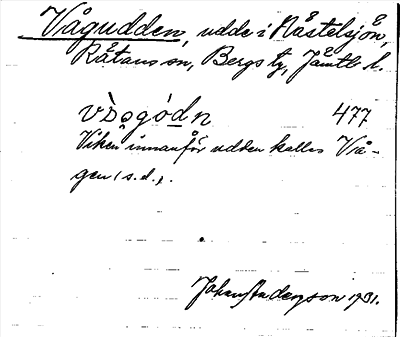 Vågudden, udde i Råstelsjön,
Råtans sn, Bergs tg, Jämtl. l.
vògódn 477
Viken innanför udden kallas Vå-
gen (s.d.).
Johan Anderson 1931.